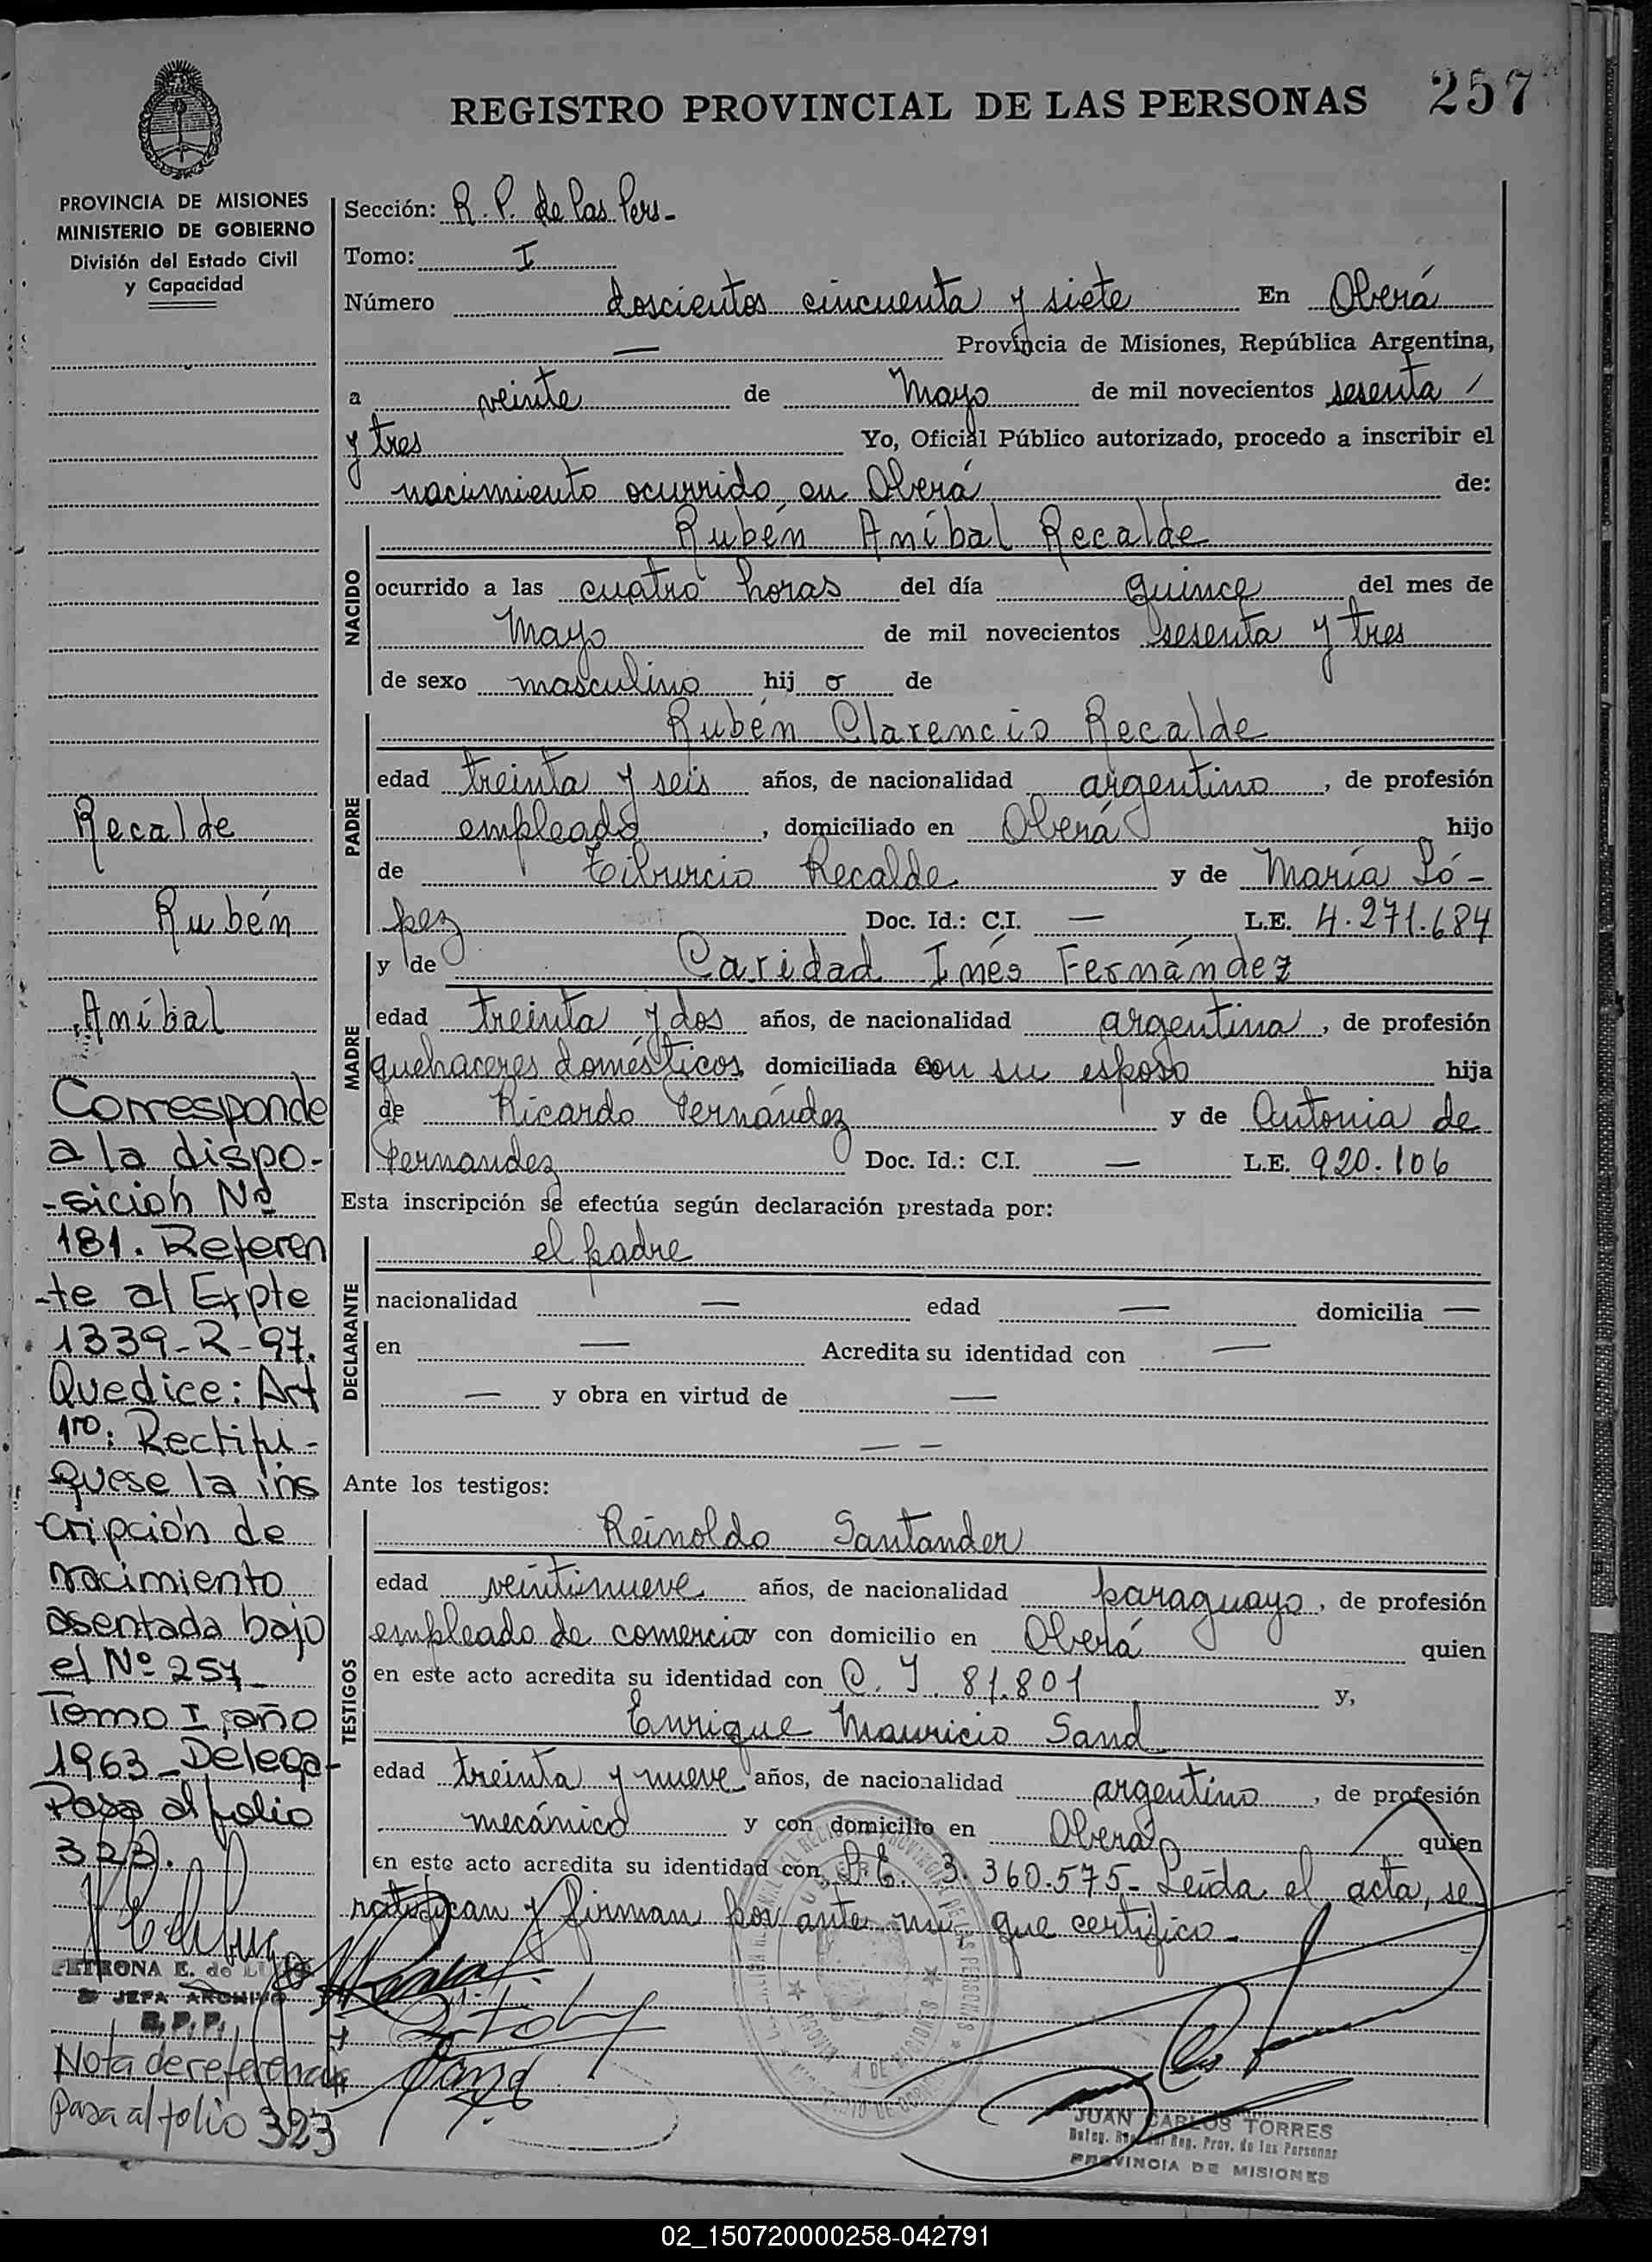 REGISTRO PROVINCIAL DE LAS PERSONAS 257
PROVINCIA DE MISIONES
MINISTERIO DE GOBIERNO
División del Estado Civil
y Capacidad
Sección: R. P. de las Pers-
Tomo: I
Número doscientos cincuenta y siete En Oberá
— Provincia de Misiones, República Argentina,
a veinte de Mayo de mil novecientos sesenta /
y tres Yo, Oficial Público autorizado, procedo a inscribir el
nacimiento ocurrido en Oberá de:
NACIDO
Rubén Aníbal Recalde
ocurrido a las cuatro horas del día quince del mes de
Mayo de mil novecientos sesenta y tres
de sexo masculino hij o de
PADRE
Rubén Clarencio Recalde
edad treinta y seis años, de nacionalidad argentino, de profesión
empleado, domiciliado en Oberá hijo
de Tiburcio Recalde y de María Ló-
pez Doc. Id.: C.I. — L.E. 4.271.684
MADRE
y de Caridad Inés Fernández
edad treinta y dos años, de nacionalidad argentina, de profesión
quehaceres domésticos, domiciliada con su esposo hija
de Ricardo Fernández y de Antonia de
Fernandez Doc. Id.: C.I. — L.E. 920.106
Esta inscripción se efectúa según declaración prestada por:
DECLARANTE
el padre
nacionalidad — edad — domicilia —
en — Acredita su identidad con —
— y obra en virtud de —
— —
Ante los testigos:
TESTIGOS
Reinoldo Santander
edad veintinueve años, de nacionalidad paraguayo, de profesión
empleado de comercio con domicilio en Oberá quien
en este acto acredita su identidad con C. I. 81.801 y,
Enrique Mauricio Sand
edad treinta y nueve años, de nacionalidad argentino, de profesión
mecánico y con domicilio en Oberá quien
en este acto acredita su identidad con L.E. 3.360.575- Leída el acta, se
ratifican y firman por ante mí que certifico-
Recalde
Rubén
Aníbal
Corresponde
a la dispo-
-sición Nº
181. Referen
-te al Expte
1339-R-97.
Quedice: Art
1ro: Rectifi-
quese la ins
cripción de
nacimiento
asentada bajo
el Nº 257
Tomo I, año
1963-Delega-
Pasa al folio
323.
PETRONA E. de
JEFA ARCHIVO
R. P. P.
Nota de referencia
Pasa al folio 323
Sand
JUAN CARLOS TORRES
Deleg. Reg. Prov. de las Personas
PROVINCIA DE MISIONES
02_150720000258-042791